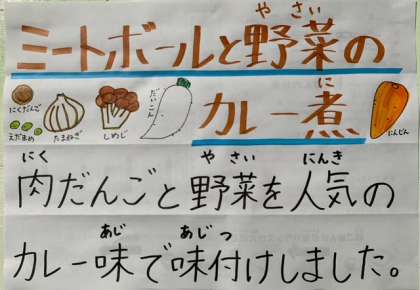 やさい
ミートボールと野菜の
に
カレー煮
にくだんご
えだまめ
たまねぎ
しめじ
だいこん
にんじん
にく やさい にんき
肉だんごと野菜を人気の
あじ あじつ
カレー味で味付けしました。